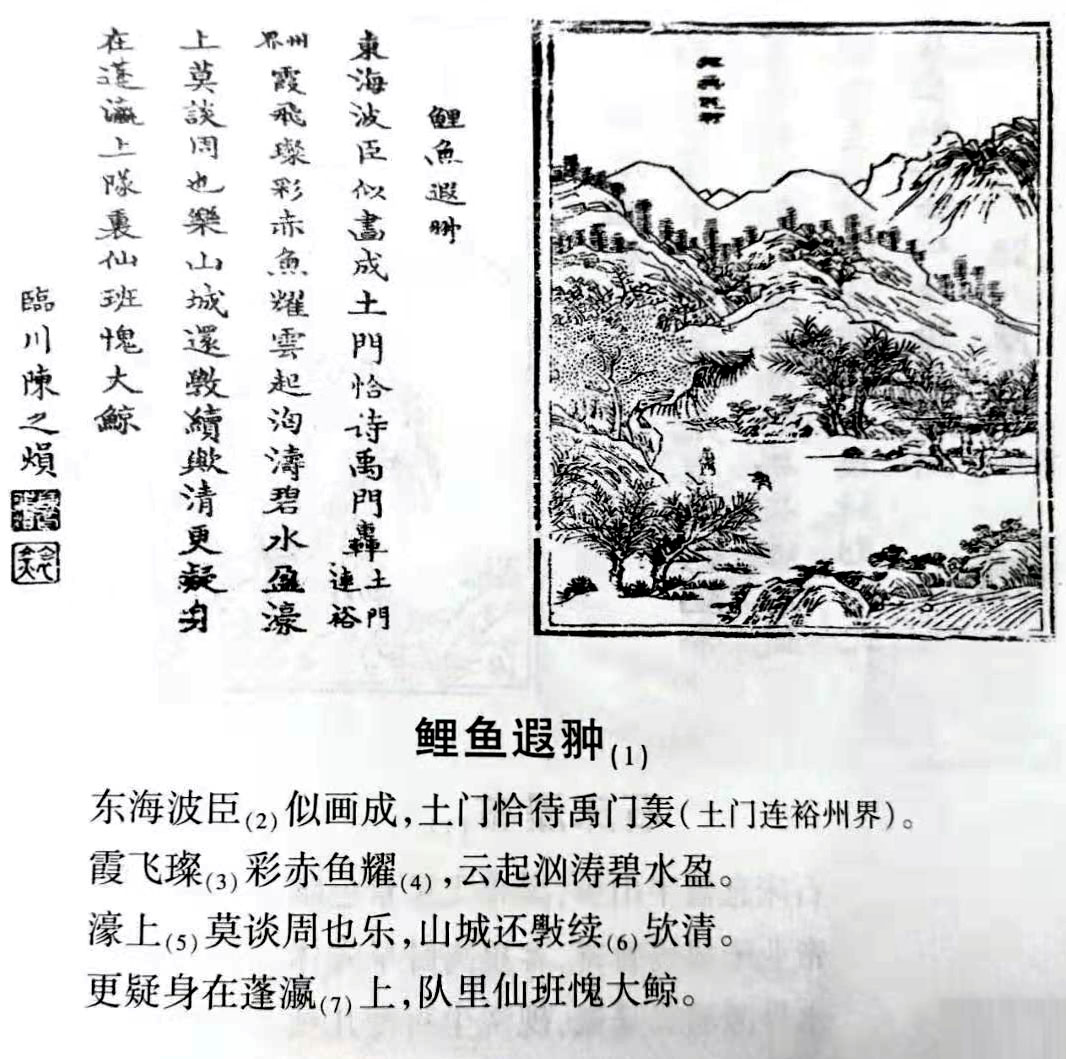 鯉魚遐翀
東海波臣似畫成土門恰待禹門轟土門連裕
州界霞飛璨彩赤魚耀雲起洶濤碧水盈濠
上莫談周也樂山城還斆續歟清更疑身
在蓬瀛上隊裏仙班愧大鯨
臨川陳之熉
鲤鱼遐翀(1)
东海波臣(2)似画成,土门恰待禹门轰(土门连裕州界)。
霞飞璨(3)彩赤鱼耀(4),云起汹涛碧水盈。
濠上(5)莫谈周也乐,山城还斆续(6)欤清。
更疑身在蓬瀛(7)上,队里仙班愧大鲸。